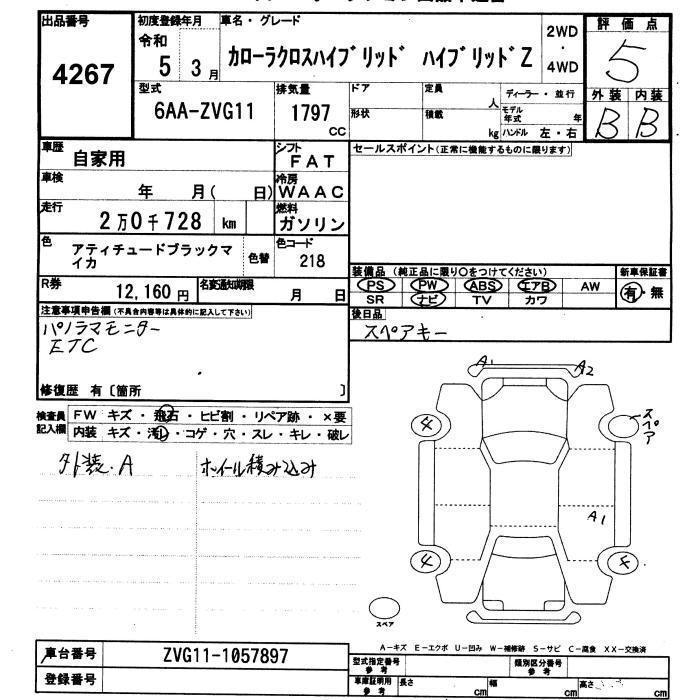 出品番号
4267
初度登録年月
令和
5 3月
車名・グレード
カローラクロスハイブリッド ハイブリッドZ
2WD
・
4WD
評価点
5
外装 内装
B B
型式
6AA-ZVG11
排気量
1797
CC
ドア
形状
定員
人
積載
kg
ディーラー・並行
モデル年式 年
ハンドル 左・右
車歴
自家用
シフト
FAT
セールスポイント(正常に機能するものに限ります)
車検
年 月( 日)
冷房
WAAC
走行
2万0千728 km
燃料
ガソリン
色
アティチュードブラックマイカ
色替
色コード
218
装備品(純正品に限り○をつけてください)
新車保証書
PS PW ABS エアB AW
SR ナビ TV カワ
有・無
R券
12,160円
名変通知期限
月 日
後日品
スペアキー
注意事項申告欄(不具合内容等は具体的に記入して下さい)
パノラマモニター
ETC
修復歴 有〔箇所 〕
検査員記入欄
FW キズ・飛石・ヒビ割・リペア跡・×要
内装 キズ・汚レ・コゲ・穴・スレ・キレ・破レ
外装.A
ホイール積み込み
A1
A2
4
スペア
A1
4
4
スペア
A-キズ E-エクボ U-凹み W-補修跡 S-サビ C-腐食 XX-交換済
車台番号
ZVG11-1057897
登録番号
型式指定番号
参考
類別区分番号
参考
車庫証明用
参考
長さ cm
幅 cm
高さ cm